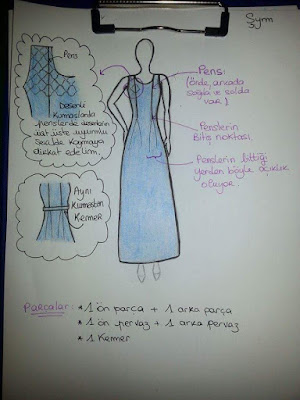 Sym
Pens
Desenli
kumaşlarda
penslerde desenlerin
üst üste uyumlu
şekilde kaymaya
dikkat edelim.
Pens:
(önde, arkada
sağda ve solda
var.)
Penslerin
Bitiş noktası.
Penslerin bittiği
yerden böyle açıklık
oluyor.
Aynı
Kumaştan
Kemer
PARÇALAR:
* 1 ön parça + 1 arka parça
* 1 ön pervaz + 1 arka pervaz
* 1 kemer